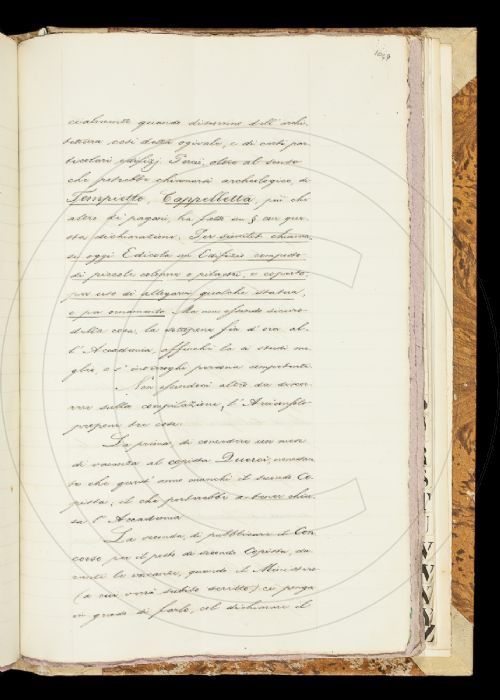 cialmente quando discorre dell'archi-
tettura così detta ogivale, e di certi par-
ticolari edifizj. Perciò, oltre al senso
che potrebbe chiamarsi archeologico, di
Tempietto, Cappelletta, più che
altro dei pagani, ha fatto un § con que-
sta dichiarazione. Per similit. chiama-
si oggi Edicola un Edifizio composto
di piccole colonne o pilastri, e coperto,
per uso di allogarvi qualche statua,
o per ornamento. Ma non essendo sicuro
della cosa, la sottopone fin d'ora al-
l'Accademia, affinchè la si studi me-
glio, e s'interroghi persona competente.
Non essendoci altro da discor-
rere sulla compilazione, l'Arciconsolo
propone tre cose:
La prima, di concedere un mese
di vacanza al copista Querci, nonostan-
te che quest'anno manchi il secondo Co-
pista; il che porterebbe a tener chiu-
sa l'Accademia.
La seconda, di pubblicare il Con-
corso per il posto di secondo Copista, du-
rante le vacanze, quando il Ministero
(a cui verrà subito scritto) ci ponga
in grado di farlo, col dichiarare il